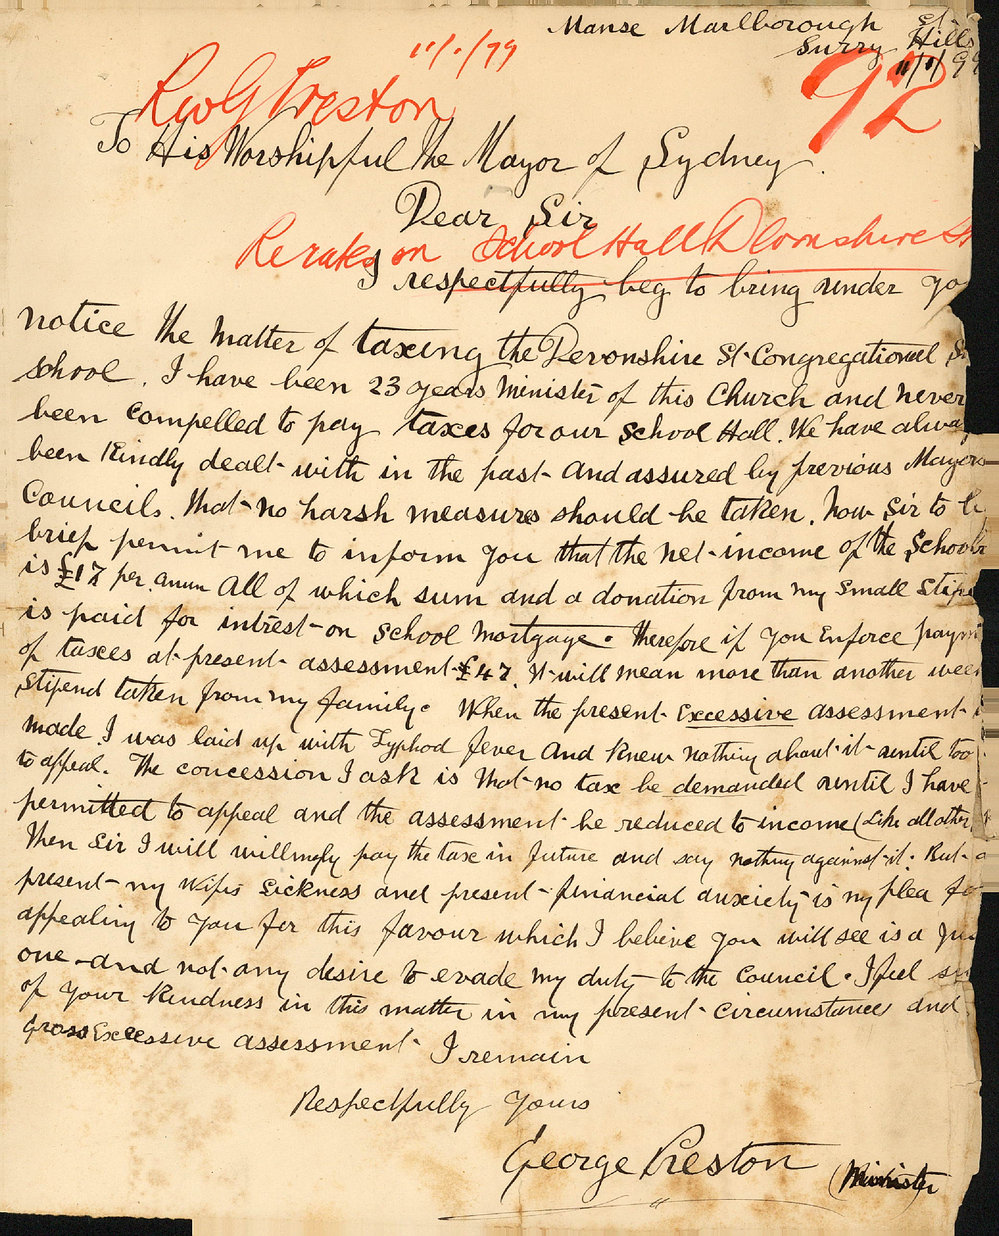 Manse Marlborough St.
Surry Hills
11/1/99
11/1/99
92
Rev G Preston
To His Worshipful the Mayor of Sydney.
Dear Sir
Re rates on School Hall Devonshire St
I respectfully beg to bring under yo
notice the matter of taxing the Devonshire St. Congregational
school. I have been 23 years Minister of this Church and never
been compelled to pay taxes for our School Hall. We have alway
been Kindly dealt with in the past and assured by previous Mayors
Councils. that no harsh measures should be taken. Now Sir to b
brief permit me to inform you that the net income of the School
is £17 per. annum All of which sum and a donation from my small Stipe
is paid for intrest on School Mortgage. Therefore if you Enforce paym
of taxes at present assessment £47. It will mean more than another week
Stipend taken from my family. When the present Excessive assessment
made. I was laid up with Typhod fever and knew nothing about it until too
to appeal. The concession I ask is that no tax be demanded until I have
permitted to appeal and the assessment be reduced to income (Like all other
then Sir I will willingly pay the tax in future and say nothing against it. But a
present my wifes Sickness and present financial anxiety is my plea fo
appealing to you for this favour which I believe you will see is a Ju
one and not any desire to evade my duty to the Council. I feel su
of your Kindness in this matter in my present circumstances and
Gross Excessive assessment I remain
Respectfully yours
George Preston (Minister